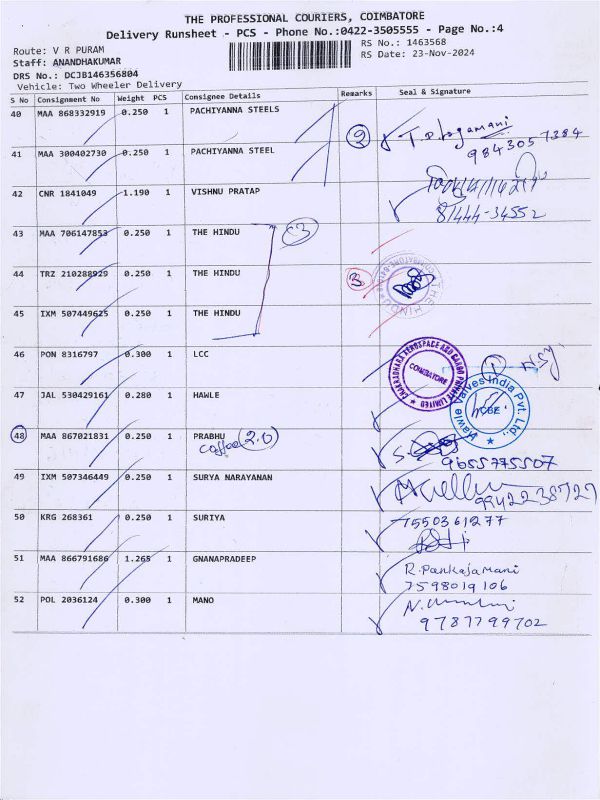 THE PROFESSIONAL COURIERS, COIMBATORE
Delivery Runsheet - PCS - Phone No.:0422-3505555 - Page No.:4
Route: V R PURAM
RS No.: 1463568
Staff: ANANDHAKUMAR
RS Date: 23-Nov-2024
DRS No.: DCJB146356804
Vehicle: Two Wheeler Delivery
S No Consignment No Weight PCS Consignee Details Remarks Seal & Signature
40 MAA 868332919 0.250 1 PACHIYANNA STEELS
2
9843057384
41 MAA 300402730 0.250 1 PACHIYANNA STEEL
42 CNR 1841049 1.190 1 VISHNU PRATAP
81444-34552
43 MAA 706147853 0.250 1 THE HINDU
3
44 TRZ 210288929 0.250 1 THE HINDU 3
THE HINDU
45 IXM 507449625 0.250 1 THE HINDU
46 PON 8316797 0.300 1 LCC
CHAKRADHARA AEROSPACE AND CARGO PRIVATE LIMITED
COIMBATORE
47 JAL 530429161 0.280 1 HAWLE
Hawle Valves India Pvt. Ltd.,
CBE
48 MAA 867021831 0.250 1 PRABHU
coffee (2.0)
9655775507
49 IXM 507346449 0.250 1 SURYA NARAYANAN
9942238727
50 KRG 268361 0.250 1 SURIYA
7550361277
51 MAA 866791686 1.265 1 GNANAPRADEEP
R. Pankajamani
7598019106
52 POL 2036124 0.300 1 MANO
9787799702